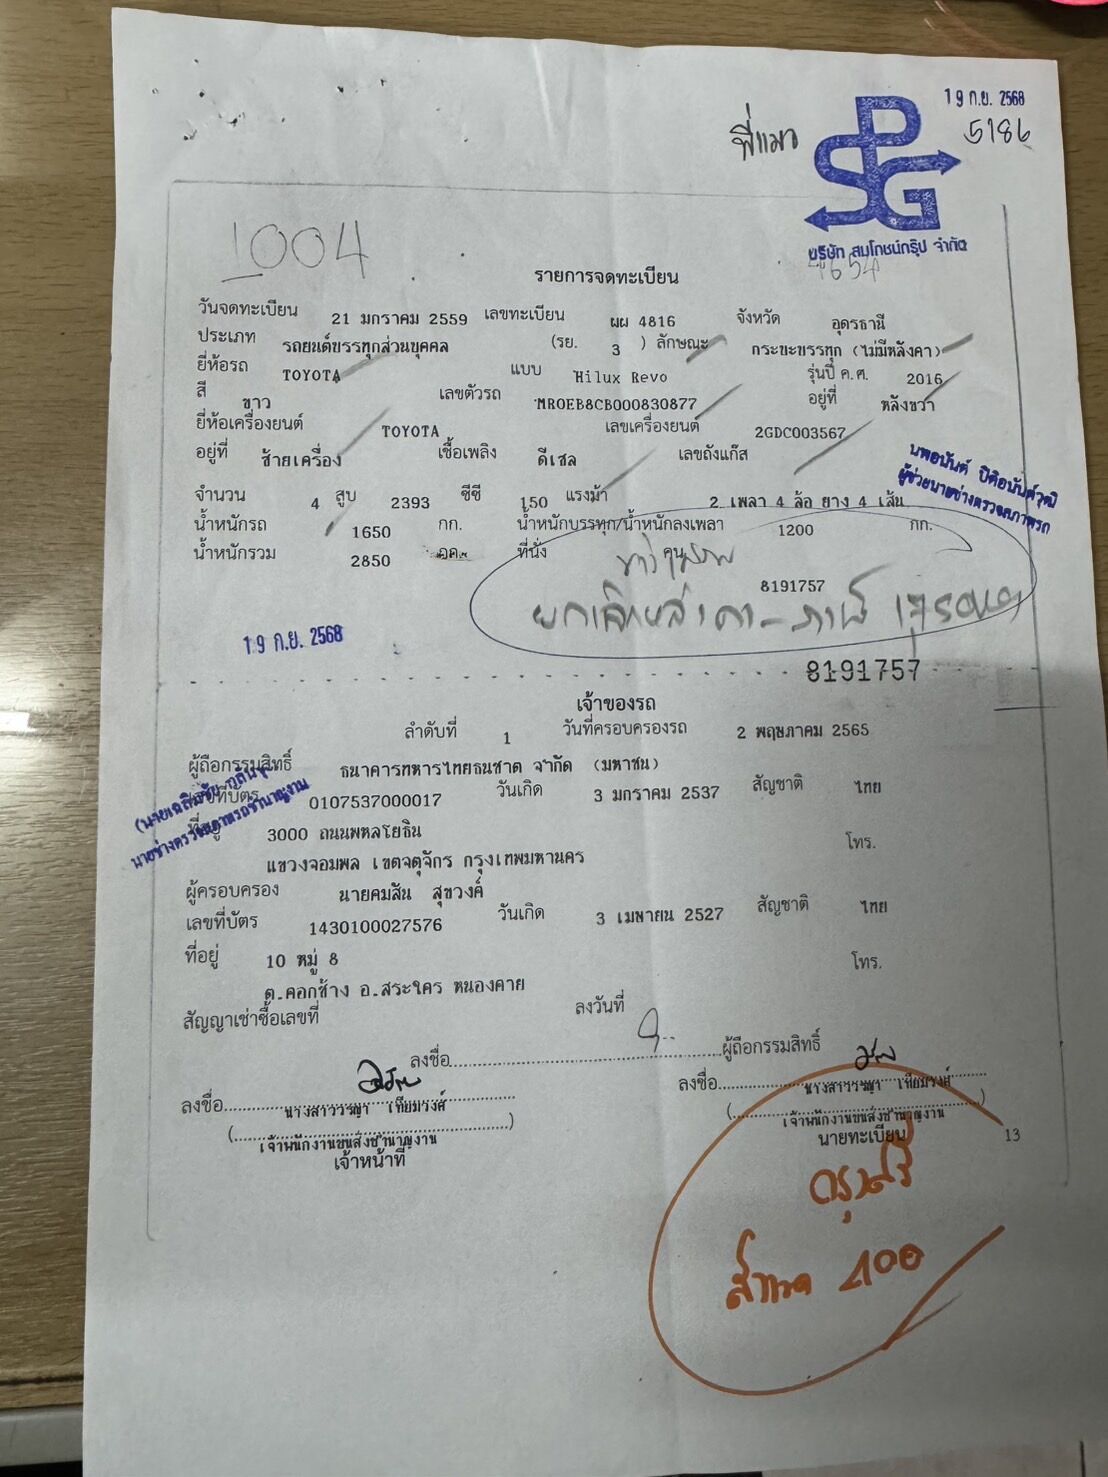 19 ก.ย. 2568
พี่แมว
5186
SPG
บริษัท สมโภชน์กรุ๊ป จำกัด
1004
รายการจดทะเบียน
วันจดทะเบียน 21 มกราคม 2559 เลขทะเบียน ผผ 4816 จังหวัด อุดรธานี
ประเภท รถยนต์บรรทุกส่วนบุคคล (รย. 3 ) ลักษณะ กระบะบรรทุก (ไม่มีหลังคา)
ยี่ห้อรถ TOYOTA แบบ Hilux Revo รุ่นปี ค.ศ. 2016
สี ขาว เลขตัวรถ MR0EB8CB000830877 อยู่ที่ หลังขวา
ยี่ห้อเครื่องยนต์ TOYOTA เลขเครื่องยนต์ 2GDC003567
อยู่ที่ ซ้ายเครื่อง เชื้อเพลิง ดีเซล เลขถังแก๊ส
นพอนันต์ ปิติอนันต์วุฒิ
ผู้ช่วยนายช่างตรวจสภาพรถ
จำนวน 4 สูบ 2393 ซีซี 150 แรงม้า 2 เพลา 4 ล้อ ยาง 4 เส้น
น้ำหนักรถ 1650 กก. น้ำหนักบรรทุก/น้ำหนักลงเพลา 1200 กก.
น้ำหนักรวม 2850 กก. ที่นั่ง คน
8191757
19 ก.ย. 2568
8191757
เจ้าของรถ
ลำดับที่ 1 วันที่ครอบครองรถ 2 พฤษภาคม 2565
ผู้ถือกรรมสิทธิ์ ธนาคารทหารไทยธนชาต จำกัด (มหาชน)
เลขที่บัตร 0107537000017 วันเกิด 3 มกราคม 2537 สัญชาติ ไทย
ที่อยู่ 3000 ถนนพหลโยธิน
นายช่างตรวจสภาพรถชำนาญงาน
แขวงจอมพล เขตจตุจักร กรุงเทพมหานคร โทร.
ผู้ครอบครอง นายคมสัน สุขวงค์
เลขที่บัตร 1430100027576 วันเกิด 3 เมษายน 2527 สัญชาติ ไทย
ที่อยู่ 10 หมู่ 8 โทร.
ต.คอกช้าง อ.สระใคร หนองคาย
สัญญาเช่าซื้อเลขที่ ลงวันที่
ลงชื่อ ผู้ถือกรรมสิทธิ์
ลงชื่อ นางสาววรญา เทียมรงค์ ลงชื่อ นางสาววรญา เทียมรงค์
( เจ้าพนักงานขนส่งชำนาญงาน ) ( เจ้าพนักงานขนส่งชำนาญงาน )
เจ้าหน้าที่ นายทะเบียน 13
กรุงศรี
400